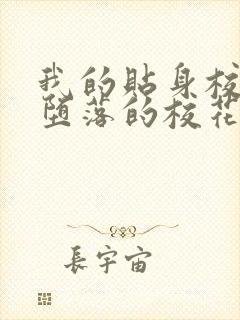 我的貼身校
堕落的校花
長宇宙